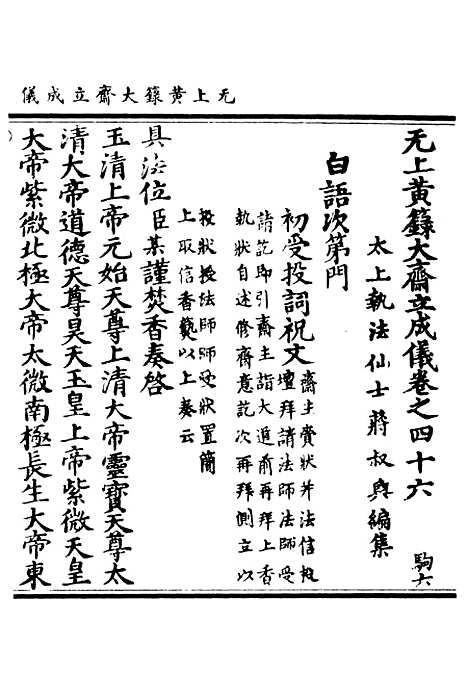 无上黄籙大齋立成儀
无上黄籙大齋立成儀卷之四十六
駒六
太上執法仙士蔣叔輿編集
白語次第門
初受投詞祝文
齋主賫狀并法信投
壇拜請法師法師受
請訖即引齋主詣大道前再拜上香
執狀自述修齋意訖次再拜側立以
投狀授法師師受狀置簡
上取信香爇以上奏云
具法位臣某謹焚香奏啓
玉清上帝元始天尊上清大帝靈寶天尊太
清大帝道德天尊昊天玉皇上帝紫微天皇
大帝紫微北極大帝太微南極長生大帝東